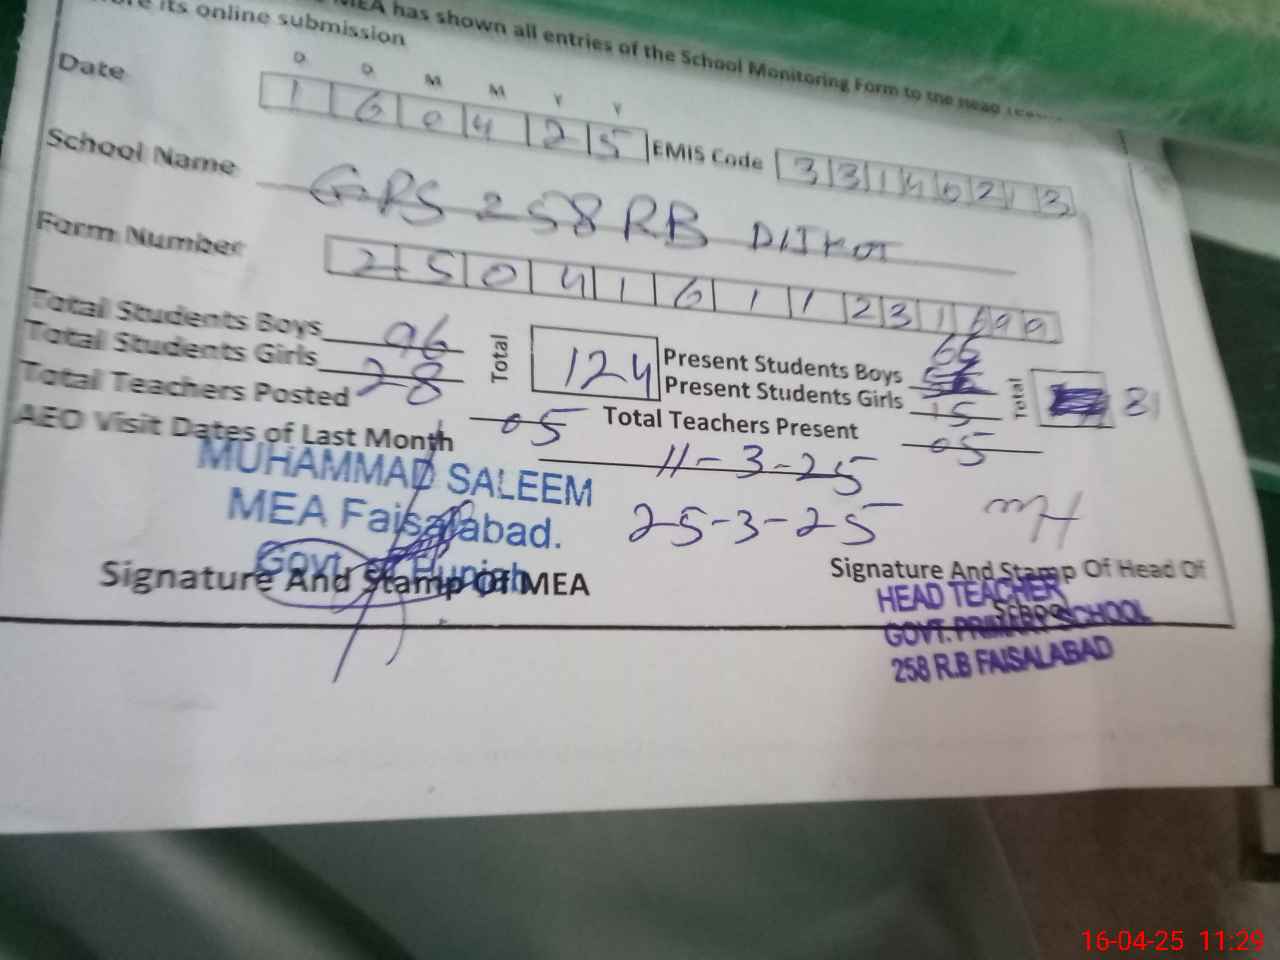 MEA has shown all entries of the School Monitoring Form to the Head
its online submission
D D M M Y Y
Date 1 6 0 4 2 5 EMIS Code 3 3 1 4 0 2 1 3
School Name GPS 258 RB DIJKOT
Form Number 2 5 0 4 1 6 1 1 2 3 1 6 9 9
Total Students Boys 96
Total Students Girls 28
Total 124
Present Students Boys 66
Present Students Girls 15
Total 81
Total Teachers Posted 05
Total Teachers Present 05
AEO Visit Dates of Last Month 11-3-25
25-3-25
MUHAMMAD SALEEM
MEA Faisalabad.
Govt. of Punjab
Signature And Stamp Of MEA
Signature And Stamp Of Head Of
School
HEAD TEACHER
GOVT. PRIMARY SCHOOL
258 R.B FAISALABAD
16-04-25 11:29